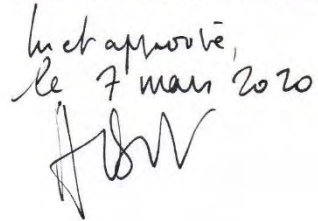 lu et approuvé,
le 7 mars 2020